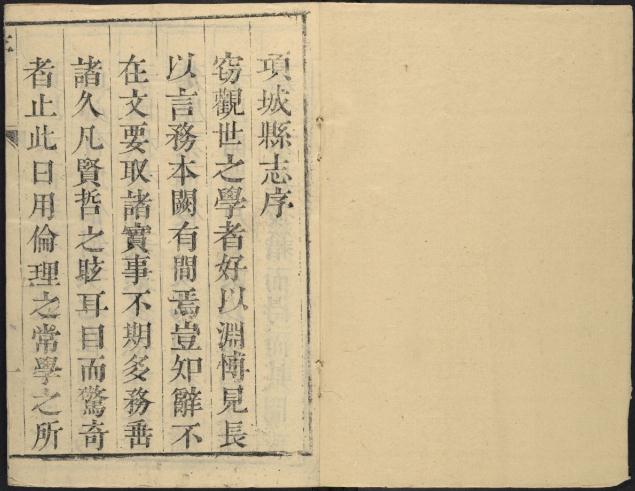 項城縣志序
竊觀世之學者好以淵博見長
以言務本闕有間焉豈知辭不
在文要取諸實事不期多務垂
諸久凡賢哲之駭耳目而驚奇
者止此日用倫理之常學之所